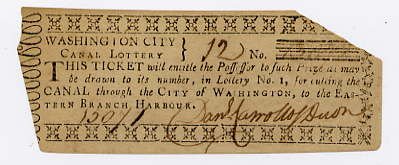 WASHINGTON CITY
CANAL LOTTERY } 12 No.
THIS TICKET will entitle the Possessor to such Prize as may
be drawn to its number, in Lottery No. 1, for cutting the
CANAL through the City of WASHINGTON, to the EAS-
TERN BRANCH HARBOUR.
Danl Carroll of Dudn